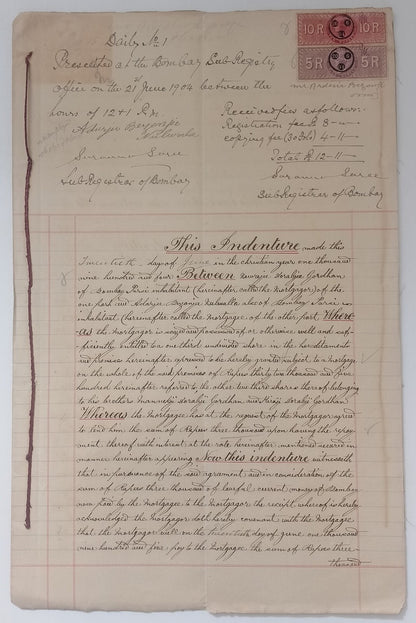 Daily No. 1
Presented at the Bombay Sub Registry
office on the 21st June 1904 between the
hours of 12 & 1 P.M.
Sub Registrar of Bombay
10 R 10 R
5 R 5 R
Received fees as follows:
Registration fee R 8 —
copying fee (30 folio) 4-11-
Total R 12-11-
Sub Registrar of Bombay
This Indenture made this
Twentieth day of June in the christian year one thousand
nine hundred and four Between Sorabji Gordhan
of Bombay Parsi inhabitant (hereinafter called the Mortgagor) of the
one part and also of Bombay Parsi
inhabitant (hereinafter called the Mortgagee) of the other part Where-
as the mortgagor is seized and possessed of or otherwise well and suf-
ficiently entitled to one third undivided share in the hereditaments
and premises hereinafter expressed to be hereby granted subject to a mortgage
on the whole of the said premises of Rupees thirty two thousand and five
hundred hereinafter referred to the other two third shares thereof belonging
to his brothers Sorabji Gordhan and Sorabji Gordhan
Whereas the Mortgagee has at the request of the Mortgagor agreed
to lend him the sum of Rupees three thousand upon having the repay-
ment thereof with interest at the rate hereinafter mentioned secured in
manner hereinafter appearing Now this indenture witnesseth
that in pursuance of the said agreement and in consideration of the
sum of Rupees three thousand of lawful current money of Bombay
now paid by the Mortgagee to the Mortgagor the receipt whereof is hereby
acknowledged the Mortgagor doth hereby covenant with the Mortgagee
that the mortgagor will on the twentieth day of June one thousand
nine hundred and five pay to the Mortgagee the sum of Rupees three
thousand